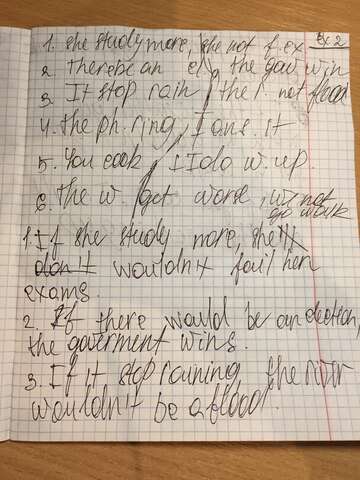 ex 2
1. she study more, she not f. ex
2. There be an el, the gov. win
3. It stop rain, the r. not flood
4. the ph. ring, I ans. it
5. You cook, I do w. up.
6. the w. get worse, we not go walk
1. If she study, more, she
wouldn't fail her
exams.
2. If there would be an election,
the goverment wins.
3. If it stop raining, the river
wouldn't be a flood.